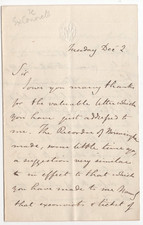 Tuesday Dec 2
Sir
I owe you many thanks
for the valuable letter which
you have just addressed to
me. The Recorder of
made, some little time ago
a suggestion very similar
in effect to that which
you have made to me
that a ticket of